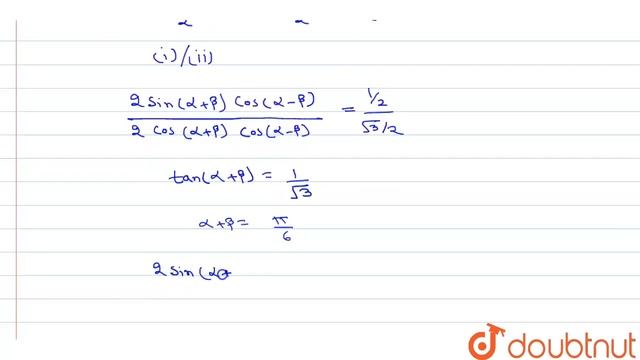 (i)/(ii)
2 sin(α+β) cos(α-β) / 2 cos(α+β) cos(α-β) = 1/2 / √3/2
tan(α+β) = 1/√3
α+β = π/6
2 sin(α+
doubtnut